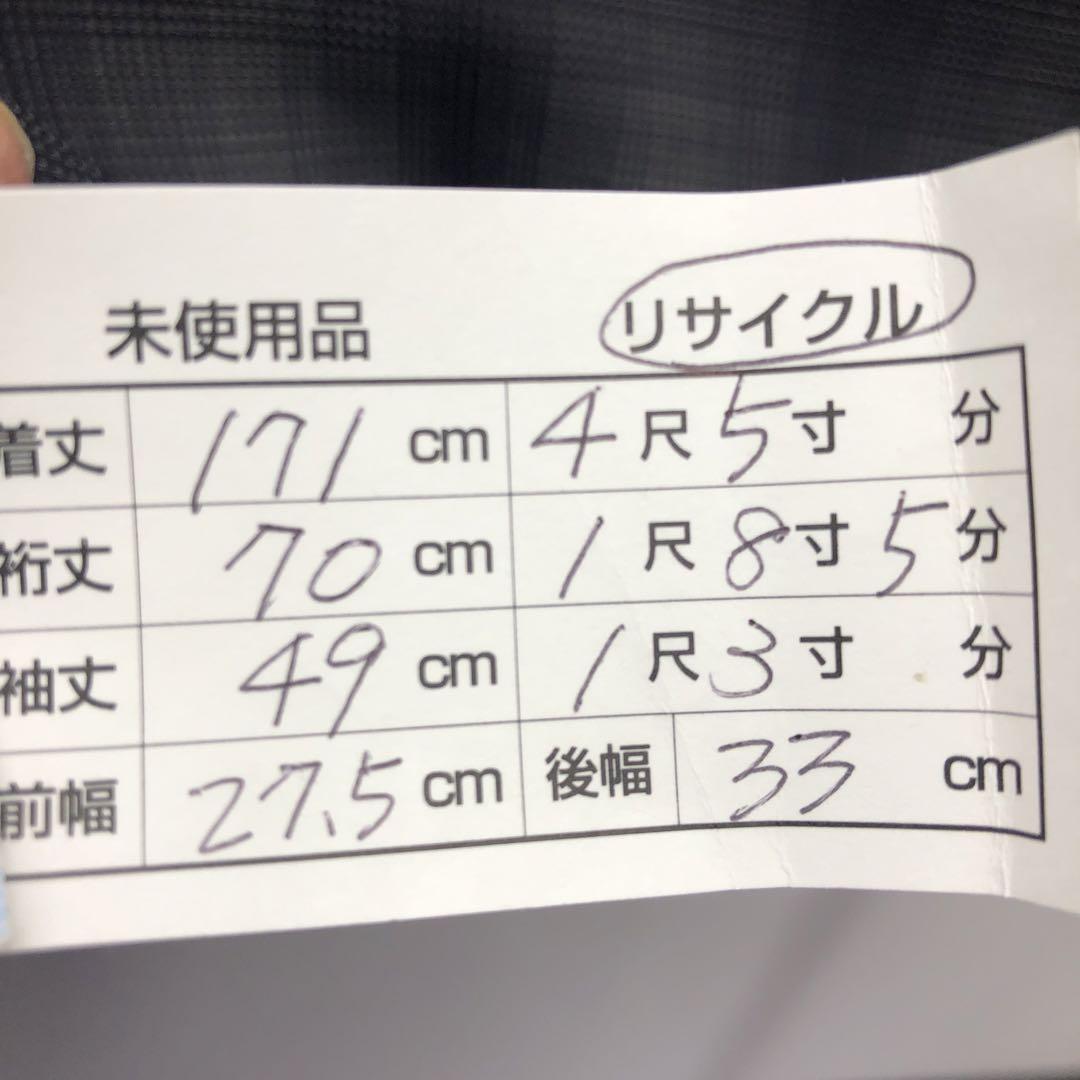 未使用品 リサイクル
着丈 171 cm 4 尺 5 寸 分
裄丈 70 cm 1 尺 8 寸 5 分
袖丈 49 cm 1 尺 3 寸 分
前幅 27.5 cm 後幅 33 cm